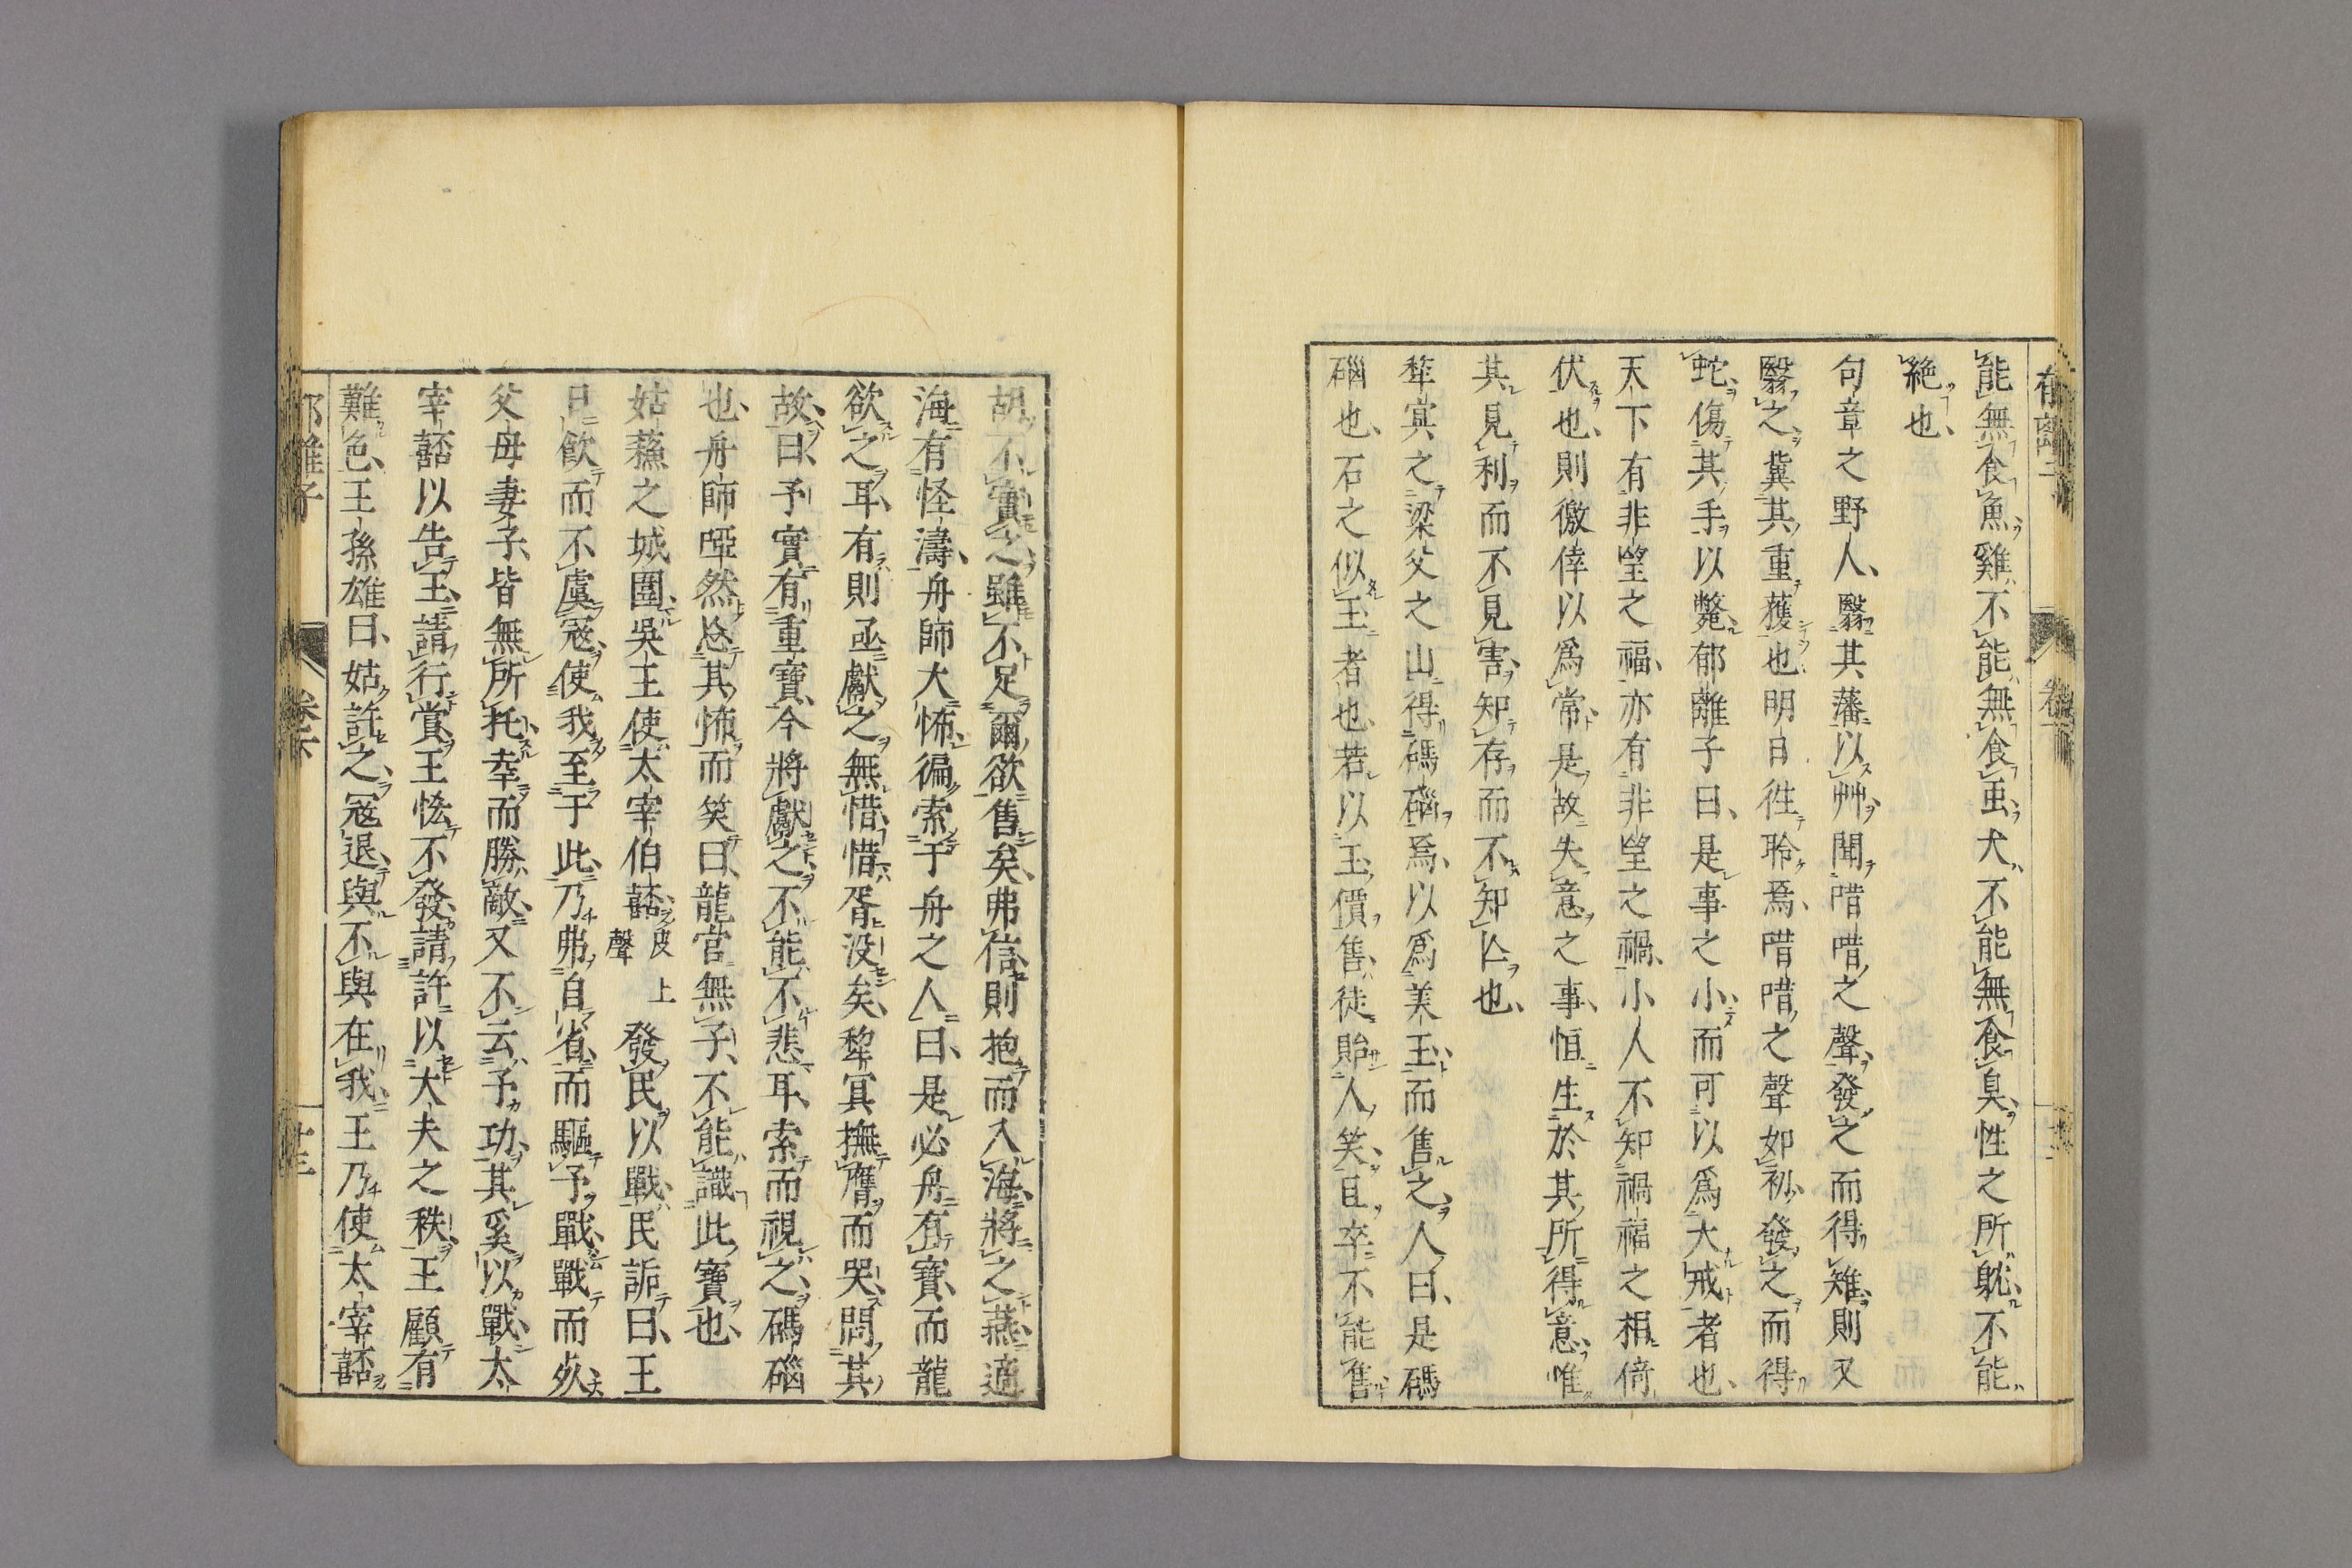 能無食魚雞不能無食虫犬不能無食臭性之所躭不能
絶也
句章之野人翳其藩以艸聞唶唶之聲發之而得雉則又
翳之冀其重獲也明日徃聆焉唶唶之聲如初發之而得
蛇傷其手以斃郁離子曰是事之小而可以爲大戒者也
天下有非望之福亦有非望之禍小人不知禍福之相倚
伏也則徼倖以爲常是故失意之事恒生於其所得意唯
其見利而不見害知存而不知亾也
犂冥之梁父之山得碼碯焉以爲美玉而售之人曰是碼
碯也石之似玉者也若以玉價售徒貽人笑且卒不能售
胡不實之雖不足爾欲售矣弗信則抱而入海將之燕適
海有怪濤舟師大怖徧索于舟之人曰是必舟有寶而龍
欲之耳有則亟獻之無惜惜胥没矣犂冥撫膺而哭問其
故曰予實有重寶今將獻之不能不悲耳索而視之碼碯
也舟師啞然忘其怖而笑曰龍宫無子不能識此寶也
姑蘇之城圍吳王使太宰伯嚭皮上聲發民以戰民詬曰王
日飲而不虞寇使我至于此乃弗自省而驅予戰戰而死
父母妻子皆無所托幸而勝敵又不云予功其奚以戰太
宰嚭以告王請行賞王恡不發請許以大夫之秩王顧有
難色王孫雄曰姑許之寇退與不與在我王乃使太宰嚭
郁離子
卷下